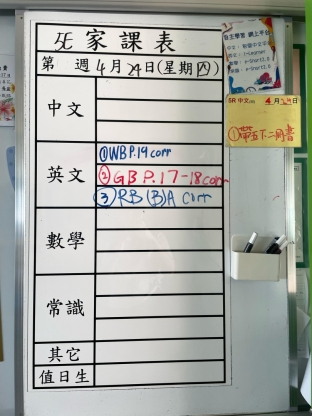 5E 家課表
第 週 4月24日(星期四)
中文
英文
①WB P.19 corr
②GB P.17-18 corr
③RB (B)A corr
數學
常識
其它
值日生
自主學習 網上平台
4月24日
①帶五下二冊書